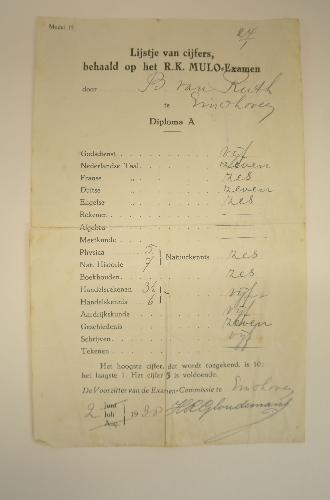 Model 15
24
Lijstje van cijfers,
behaald op het R.K. MULO-Examen
door B van Ruth
te Eindhoven
Diploma A
Godsdienst vijf
Nederlandse Taal zeven
Franse „ zes
Duitse „ zeven
Engelse „ zes
Rekenen —
Algebra —
Meetkunde —
Physica 5
Nat. Historie 7 } Natuurkennis zes
Boekhouden zes
Handelsrekenen 3½
Handelskennis 6 } vijf
Aardrijkskunde vijf
Geschiedenis zeven
Schrijven vijf
Tekenen —
Het hoogste cijfer, dat wordt toegekend, is 10;
het laagste 1. Het cijfer 5 is voldoende.
De Voorzitter van de Examen-Commissie te Eindhoven
Juni
2 Juli 1930
Aug.